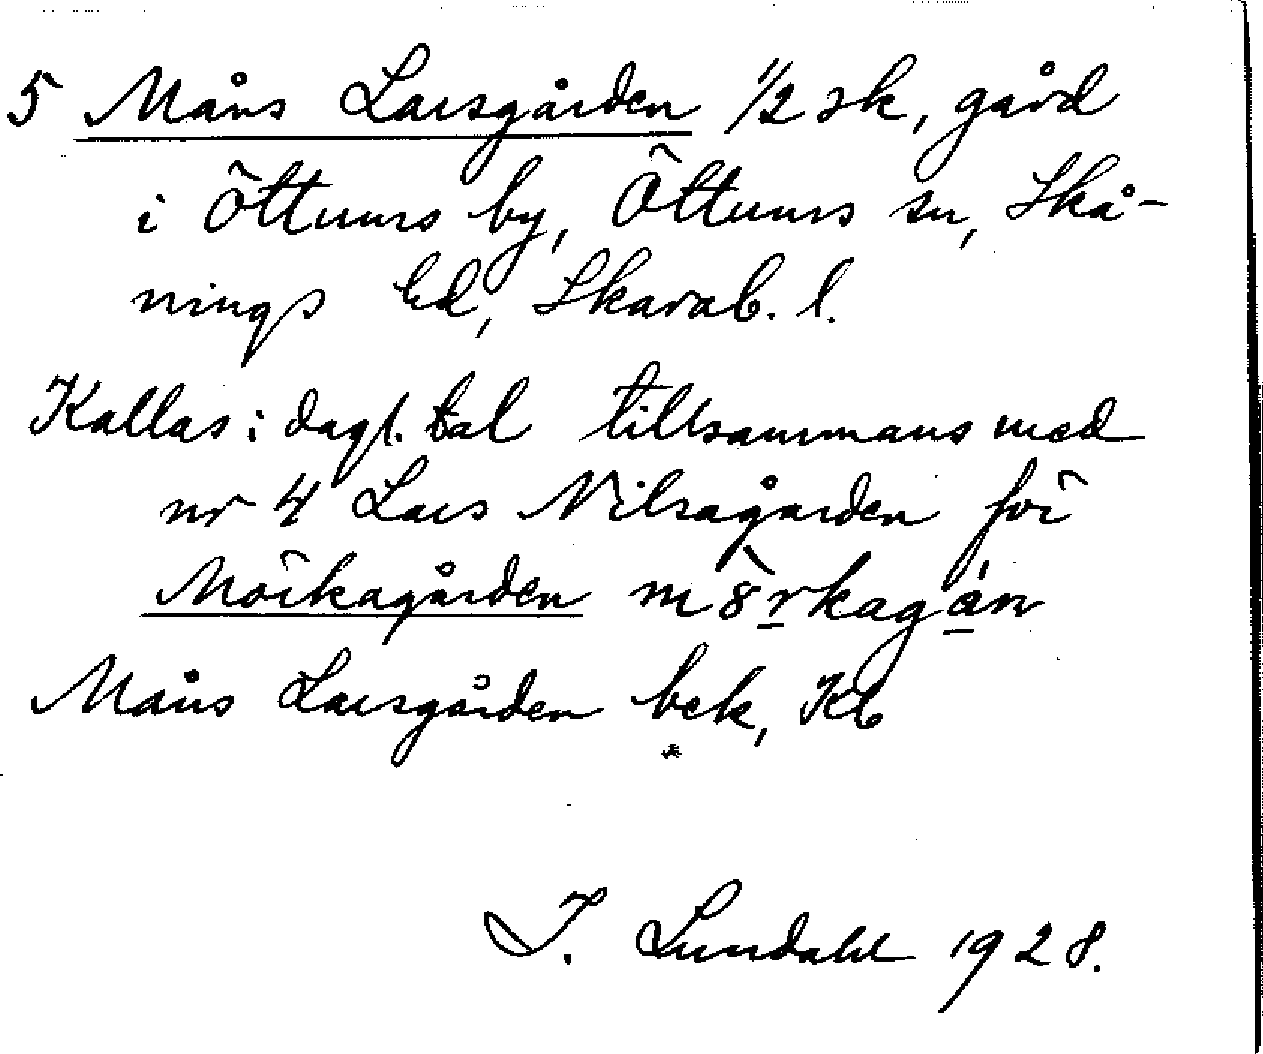 5 Måns Larsgården 1/2 sk, gård
i Öttums by, Öttums sn, Skå-
nings hd, Skarab. l.
Kallas i dagl. tal tillsammans med
nr 4 Lars Nilsagården för
Mörkagården m8̀rkagán
Måns Larsgården bek, Kb
I. Lundahl 1928.